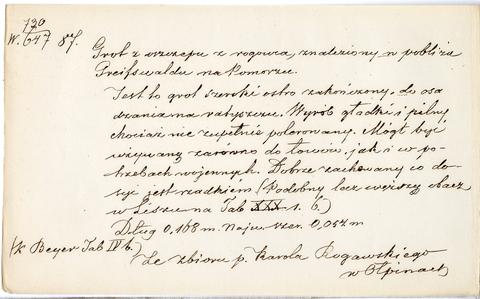 730
W. 647 87. Grot z oszczepu z rogowca, znaleziony w pobliżu
Greifswaldu na Pomorzu.
Jest to grot szeroki ostro zakończony, do osa
dzania na ratyszczu. Wyrób gładki i pilny
chociaż nie zupełnie polerowany. Mógł być
używany zarówno do łowów, jak i w po-
trzebach wojennych. Dobrze zachowany co do-
syć jest rzadkiem (Podobny lecz węższy obacz
w Liszu na Tab XXX 1. b.)
Dług 0,168 m. Najw. szer. 0,054 m
(k Beyer Tab IV b.)
Ze zbioru p. Karola Rogawskiego
w Ołpinach